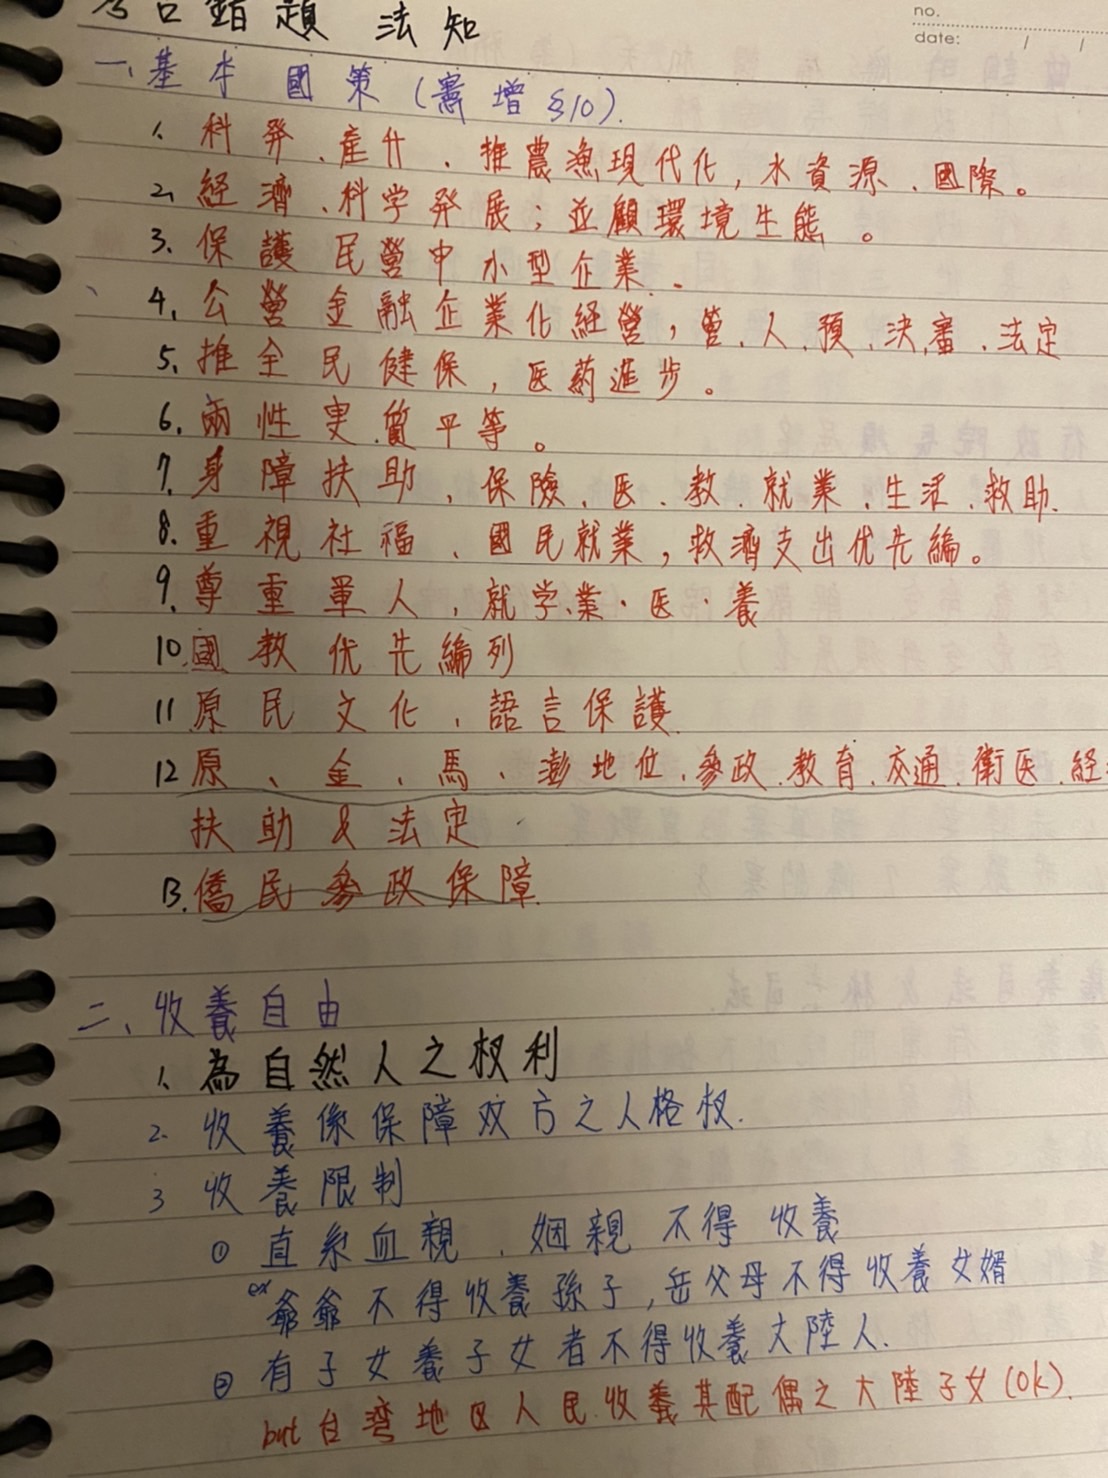 no.
date: / /
錯題 法知
一、基本國策(憲增§10).
1. 科發、產升、推農漁現代化,水資源、國際。
2. 經濟、科学發展;並顧環境生態。
3. 保護民營中小型企業.
4. 公營金融企業化經營,管、人、預、決、審、法定
5. 推全民健保,医葯進步。
6. 兩性实質平等。
7. 身障扶助、保險、医、教、就業、生活、救助.
8. 重視社福、國民就業,救濟支出优先編。
9. 尊重軍人,就学、業、医、養
10. 國教优先編列
11 原民文化、語言保護.
12 原、金、馬、澎地位、參政、教育、交通、衛医、経
扶助&法定
13. 僑民參政保障.
二、收養自由
1. 為自然人之权利
2. 收養係保障双方之人格权.
3 收養限制
① 直系血親、姻親不得收養
ex 爺爺不得收養孫子,岳父母不得收養女婿
② 有子女養子女者不得收養大陸人.
but 台湾地区人民收養其配偶之大陸子女(ok).